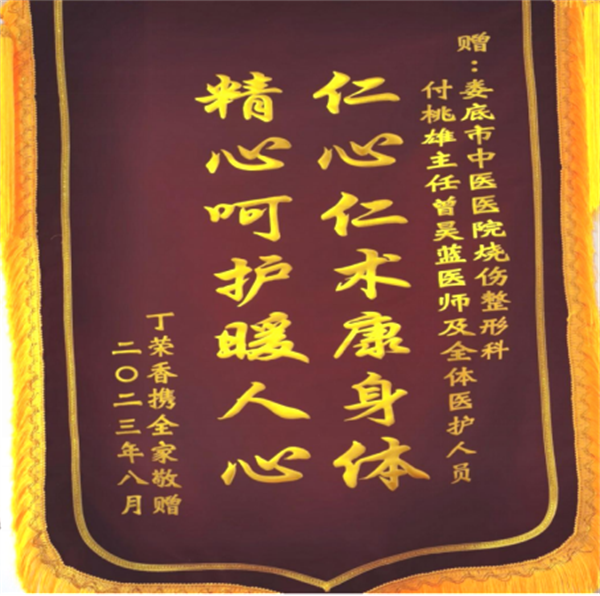 赠：娄底市中医医院烧伤整形科
付桃雄主任曾昊蓝医师及全体医护人员
仁心仁术康身体
精心呵护暖人心
丁荣香携全家敬赠
二〇二三年八月